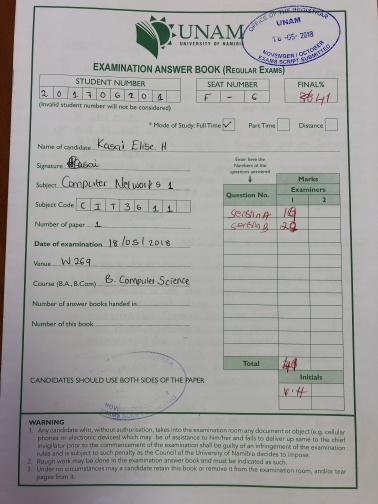 UNAM
UNIVERSITY OF NAMIBIA
OFFICE OF THE REGISTRAR
UNAM
16 -05- 2018
NOVEMBER / OCTOBER
EXAMS SCRIPT SUBMITTED
EXAMINATION ANSWER BOOK (REGULAR EXAMS)
STUDENT NUMBER SEAT NUMBER FINAL%
201706201 F - 6 41
(Invalid student number will not be considered)
* Mode of Study: Full Time ✓ Part Time Distance
Name of candidate Kasai Elise. H
Signature Kasai
Enter here the Numbers of the questions answered
Marks
Subject Computer Networks 1
Question No. Examiners
1 2
Subject Code CIT3611
Section A
Section B
Number of paper 1
Date of examination 18/05/2018
Venue W269
Course (B.A., B.Com) B. Computer Science
Number of answer books handed in
Number of this book
Total
Initials
CANDIDATES SHOULD USE BOTH SIDES OF THE PAPER
V.H
WARNING
1. Any candidate who, without authorisation, takes into the examination room any document or object (e.g. cellular
phones or electronic devices) which may be of assistance to him/her and fails to deliver up same to the chief
invigilator prior to the commencement of the examination shall be guilty of an infringement of the examination
rules and is subject to such penalty as the Council of the University of Namibia decides to impose.
2. Rough work may be done in the examination answer book and must be indicated as such.
3. Under no circumstances may a candidate retain this book or remove it from the examination room, and/or tear
pages from it.